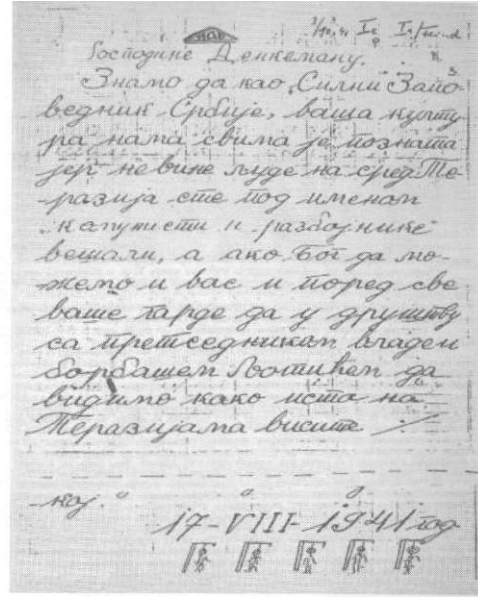 Господине Денкеману.
Знамо да као „Силни Запо-
ведник Србије, ваша култу
ра нама свима је позната
јер невине људе на сред Те-
разија сте под именом
комунисти и разбојнике
вешали, а ако Бог да мо-
жемо и вас и поред све
ваше гарде да у друштву
са претседником владе и
борбашем Љотићем да
видимо како исто на
Теразијама висите
17-VIII-1941 год